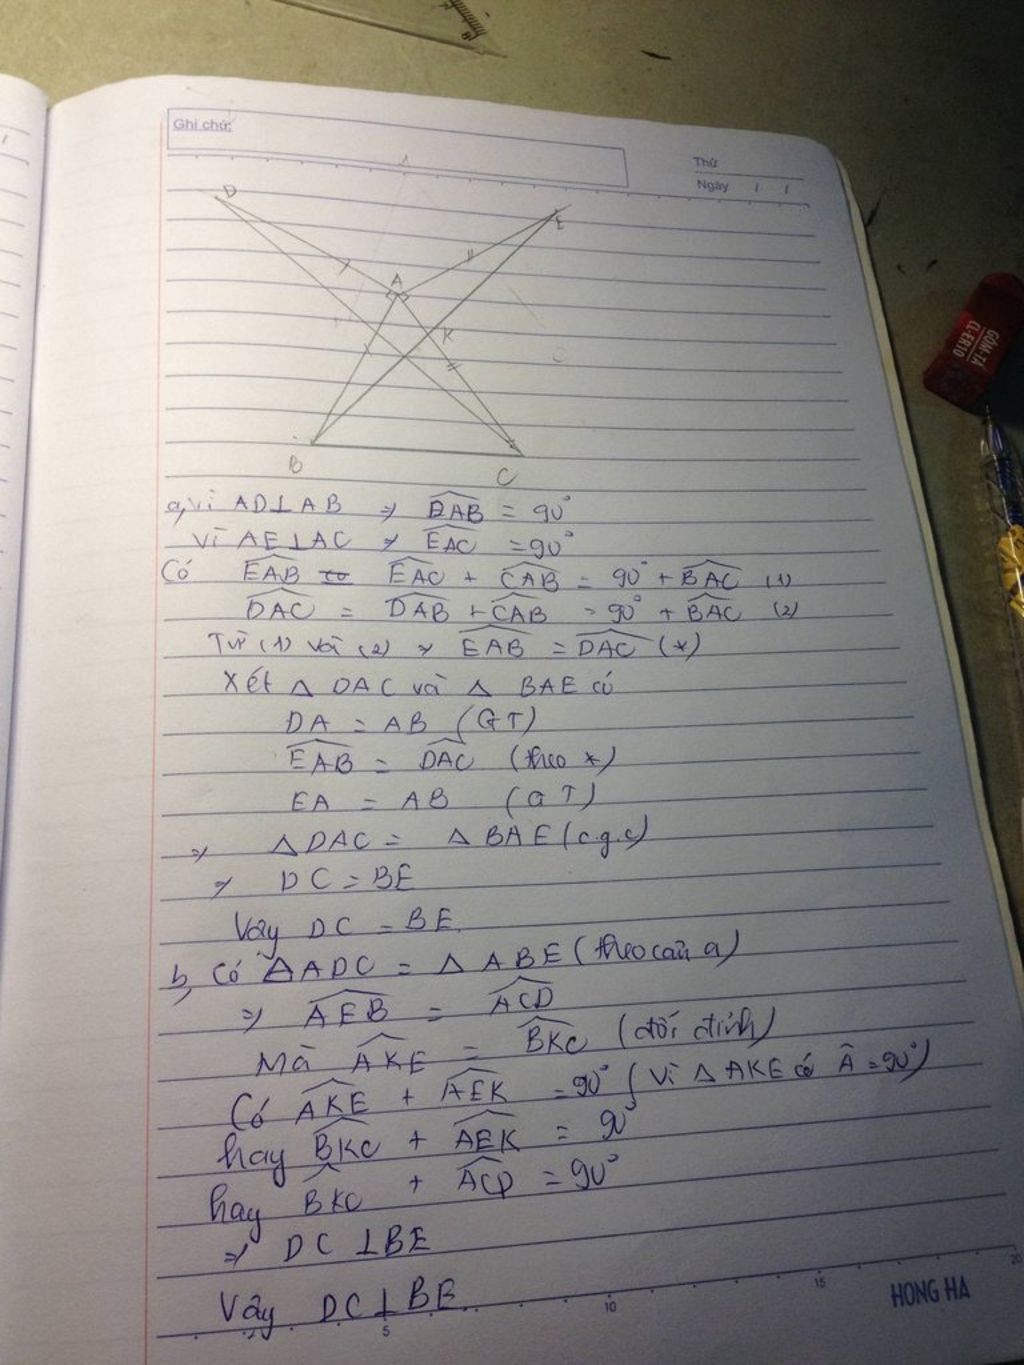 Ghi chú:
Thứ
Ngày / /
D
E
A
K
B
C
GÔM-TẨY
CI-ER10
a, vì AD⊥AB ⇒ DAB = 90°
vì AE⊥AC ⇒ EAC = 90°
Có EAB = EAC + CAB = 90° + BAC (1)
DAC = DAB + CAB = 90° + BAC (2)
Từ (1) và (2) ⇒ EAB = DAC (*)
Xét △ DAC và △ BAE có
DA = AB (GT)
EAB = DAC (theo *)
EA = AB (GT)
⇒ △DAC = △BAE (c.g.c)
⇒ DC = BE
Vậy DC = BE.
b, Có △ADC = △ABE (theo câu a)
⇒ AEB = ACD
Mà AKE = BKC (đối đỉnh)
Có AKE + AEK = 90° (vì △AKE có Â = 90°)
hay BKC + AEK = 90°
hay BKC + ACD = 90°
⇒ DC ⊥BE
Vậy DC⊥BE
5 10 15 20
HONG HA